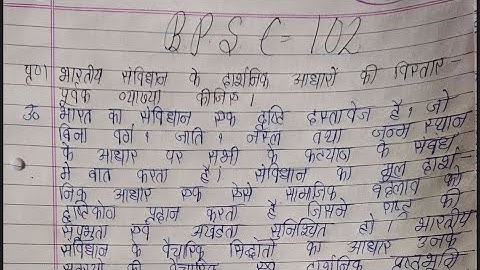 B.P.S C-102
प्र०1 भारतीय संविधान के दार्शनिक आधारों की विस्तार-
पूर्वक व्याख्या कीजिए।
उ० भारत का संविधान एक दृष्टि दस्तावेज है। जो
बिना वर्ग। जाति। नस्ल तथा जन्म स्थान
के आधार पर सभी के कल्याण के संबंध
में बात करता है। संविधान का मूल दार्श-
निक आधार एक ऐसे सामाजिक बदलाव को
दृष्टिकोण प्रदान करता है जिसने राष्ट्र की
सप्रभुता एवं अखंडता सुनिश्चित हो। भारतीय
संविधान के वैचारिक सिद्धांतों का आधार उनके
एक दार्शनिक